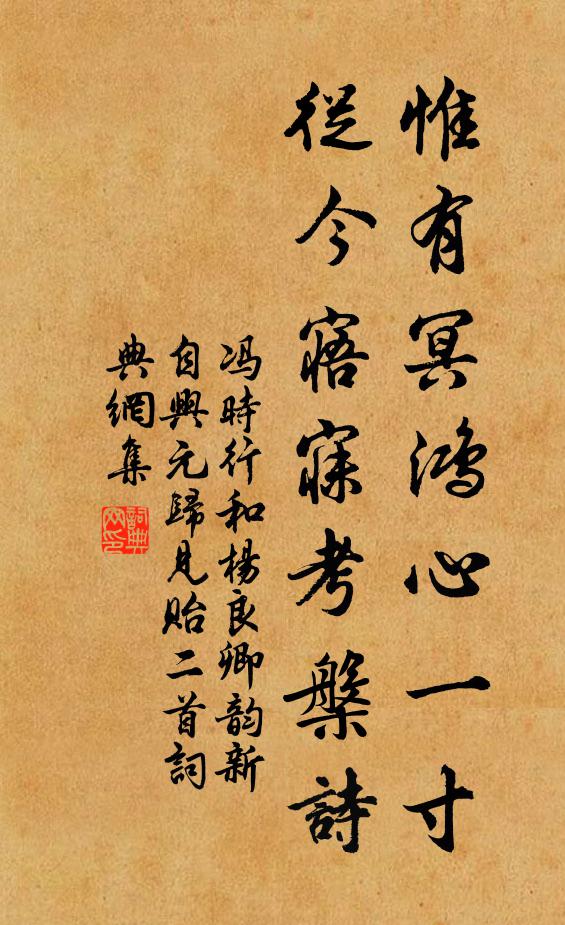 惟有冥鴻心一寸
從今寤寐考槃詩
馮時行和楊良卿韵新
自興元歸見貽二首詞
典網集
詞典
网